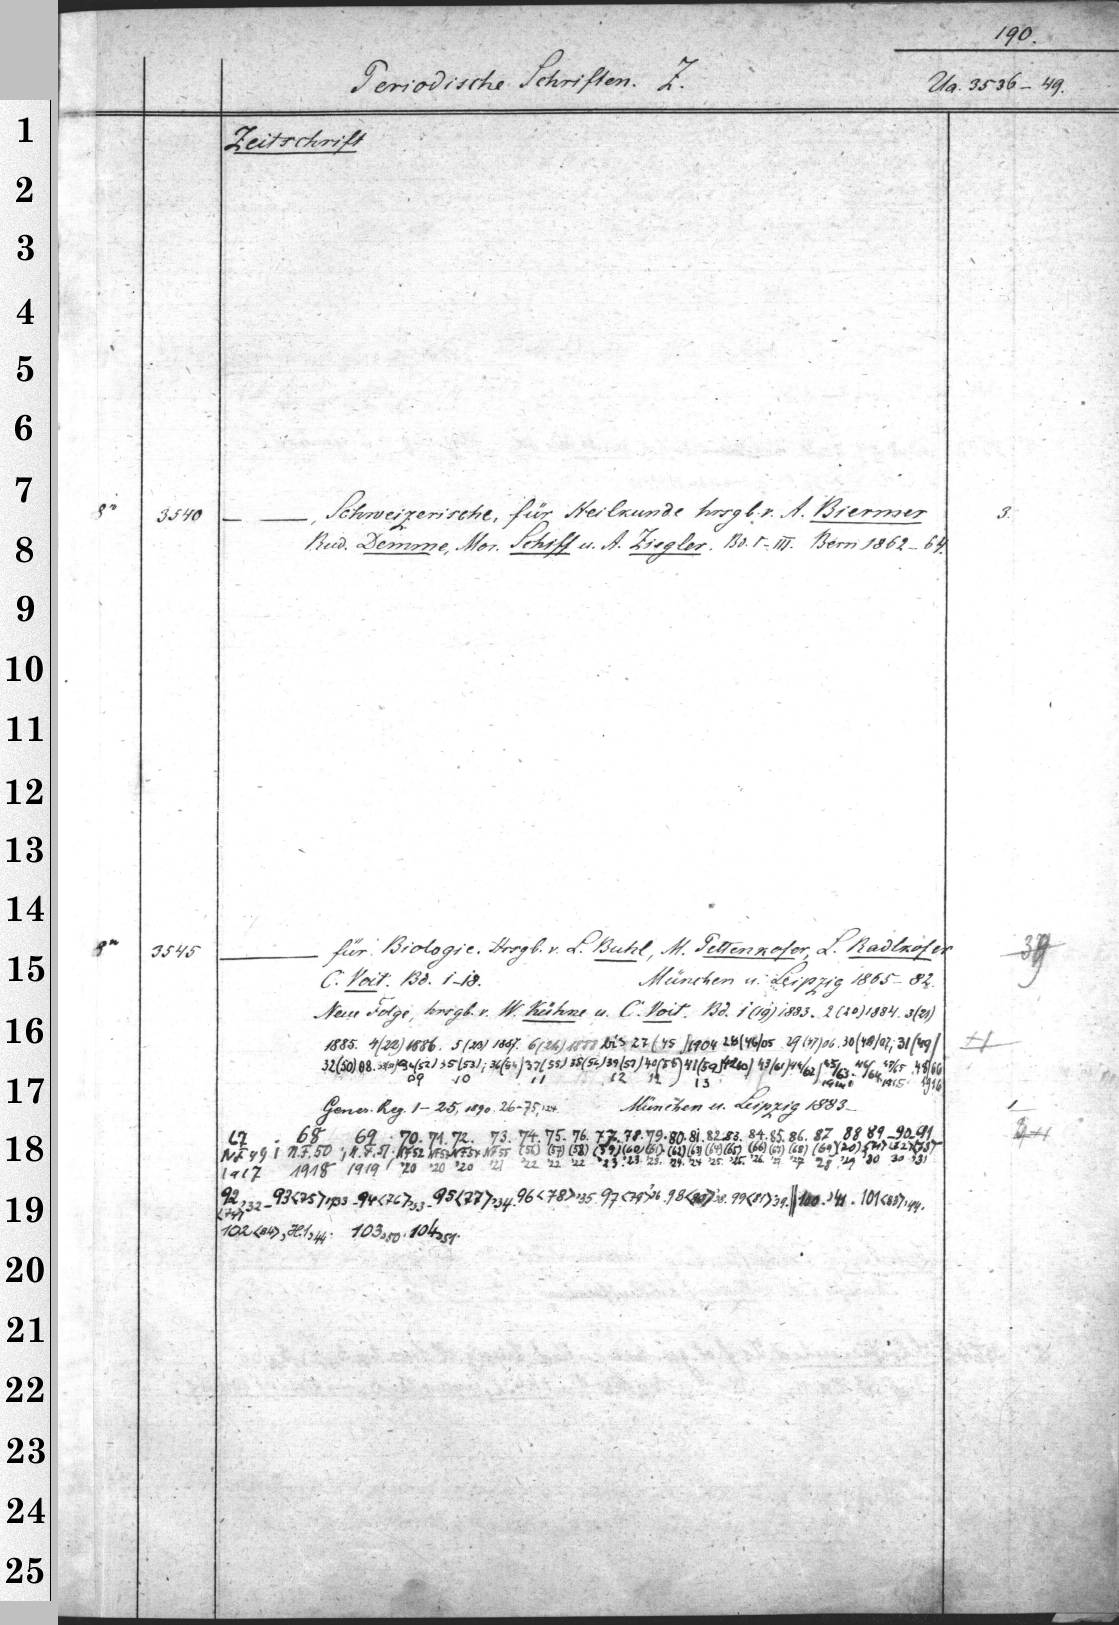 190.
Periodische Schriften. Z.
Ua. 3536 - 49.
Zeitschrift
1
2
3
4
5
6
7
8º 3540 — —, Schweizerische, für Heilkunde hrsgb. v. A. Biermer 3.
8
Rud. Demme, Mor. Schiff u. A. Ziegler. Bd. I-III. Bern 1862-64.
9
10
11
12
13
14
8º 3545 —— für Biologie. Hrsgb. v. L. Buhl, M. Pettenkofer, L. Radlkofer
15
C. Voit. Bd. 1-18. München u. Leipzig 1865-82.
Neue Folge, hrsgb. v. W. Kühne u. C. Voit. Bd. 1 (19) 1883. 2 (20) 1884. 3 (21)
16
1885. 4 (22) 1886. 5 (23) 1887. 6 (24) 1888 bis 27 (45) 1904 28 (46) 05 29 (47) 06. 30 (48) 07; 31 (49)
32 (50) 08. 34 (52) 35 (53); 36 (54) 37 (55) 38 (56) 39 (57) 40 (58) 41 (59) 43/61
09 10 11 12 13
17
Gener. Reg. 1-25, 1890. 26-75, München u. Leipzig 1883-
67 68 69 70. 71. 72. 73. 74. 75. 76. 77. 78. 79. 80. 81. 82. 83. 84. 85. 86. 87 88 89 90 91
18
1917 1918 1919 '20 '20 '20 '21 '22 '22 '22 '23
19
92 <74>, 32 - 93 <75> 1933 - 94 <76>, 33 - 95 <77>, 34. 96 <78>, 35. 97 <79> 36. 98 99 <81> 39. 100. 41. 101 <83>, 44.
102 <84>, H.1, 44. 103, 50. 104, 51.
20
21
22
23
24
25